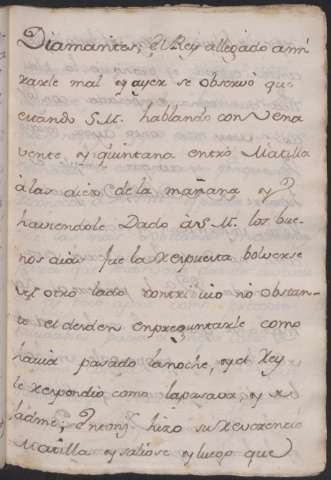 Diamantes; el Rey allegado a mi
rarle mal, y ayer se observó que
estando S.M. hablando con Vena
vente, y Quintana entró Matilla
à las diez de la mañana, y
haviendole Dado à S.M. los bue
nos dias fue la respuesta bolverse
del otro lado continuò no obstan
te el desden en preguntarle como
havia pasado la noche, y el Rey
le respondio como la pasava, y
hizo su reverencia
Matilla y saliose y luego que